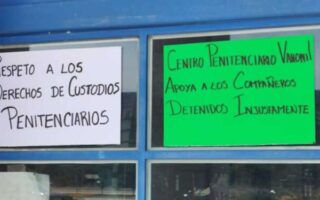 RESPETO A LOS
DERECHOS DE CUSTODIOS
PENITENCIARIOS
CENTRO PENITENCIARIO VARONIL
APOYA A LOS COMPAÑEROS
DETENIDOS INJUSTAMENTE